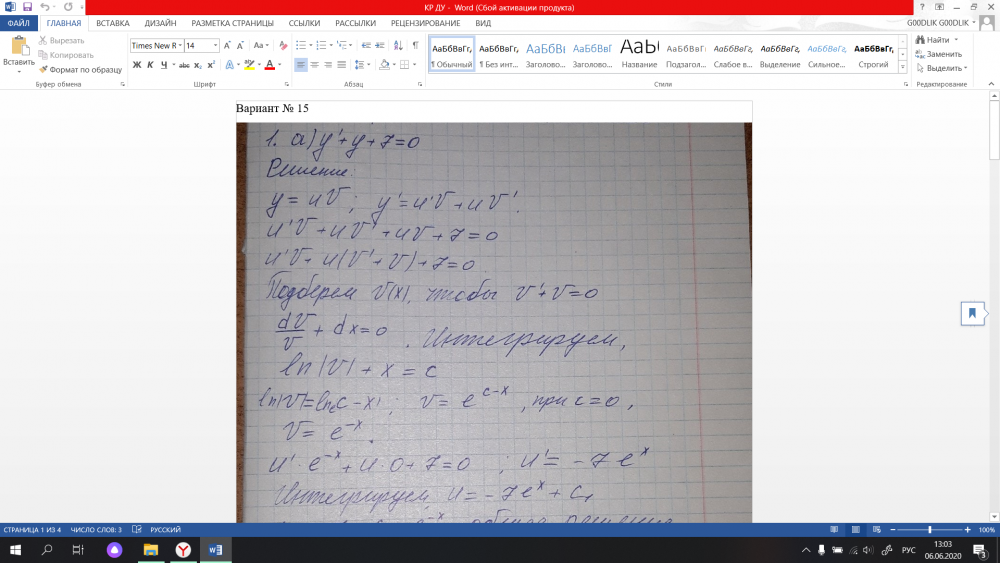 КР ДУ - Word (Сбой активации продукта)
ФАЙЛ ГЛАВНАЯ ВСТАВКА ДИЗАЙН РАЗМЕТКА СТРАНИЦЫ ССЫЛКИ РАССЫЛКИ РЕЦЕНЗИРОВАНИЕ ВИД G00DLIK G00DLIK
Вставить
Вырезать
Копировать
Формат по образцу
Буфер обмена
Times New R 14
Ж К Ч abc x₂ x²
Шрифт
Абзац
АаБбВвГг, АаБбВвГг, АаБбВı АаБбВвГ АаБ АаБбВвГ АаБбВвГг, АаБбВвГг, АаБбВвГг, АаБбВвГг,
¶ Обычный ¶ Без инт... Заголово... Заголово... Название Подзагол... Слабое в... Выделение Сильное... Строгий
Стили
Найти
Заменить
Выделить
Редактирование
Вариант № 15
1. а) y' + y + 7 = 0
Решение:
y = uV; y' = u'V + uV'.
u'V + uV' + uV + 7 = 0
u'V + u(V' + V) + 7 = 0
Подберем V(x), чтобы V' + V = 0
dV/V + dx = 0. Интегрируем,
ln|V| + x = c
V = e^(c-x), при c = 0,
V = e^(-x).
u'·e^(-x) + u·0 + 7 = 0; u' = -7e^x
Интегрируем, u = -7e^x + C₁
общее решение
СТРАНИЦА 1 ИЗ 4 ЧИСЛО СЛОВ: 3 РУССКИЙ 100%
РУС
13:03
06.06.2020
3